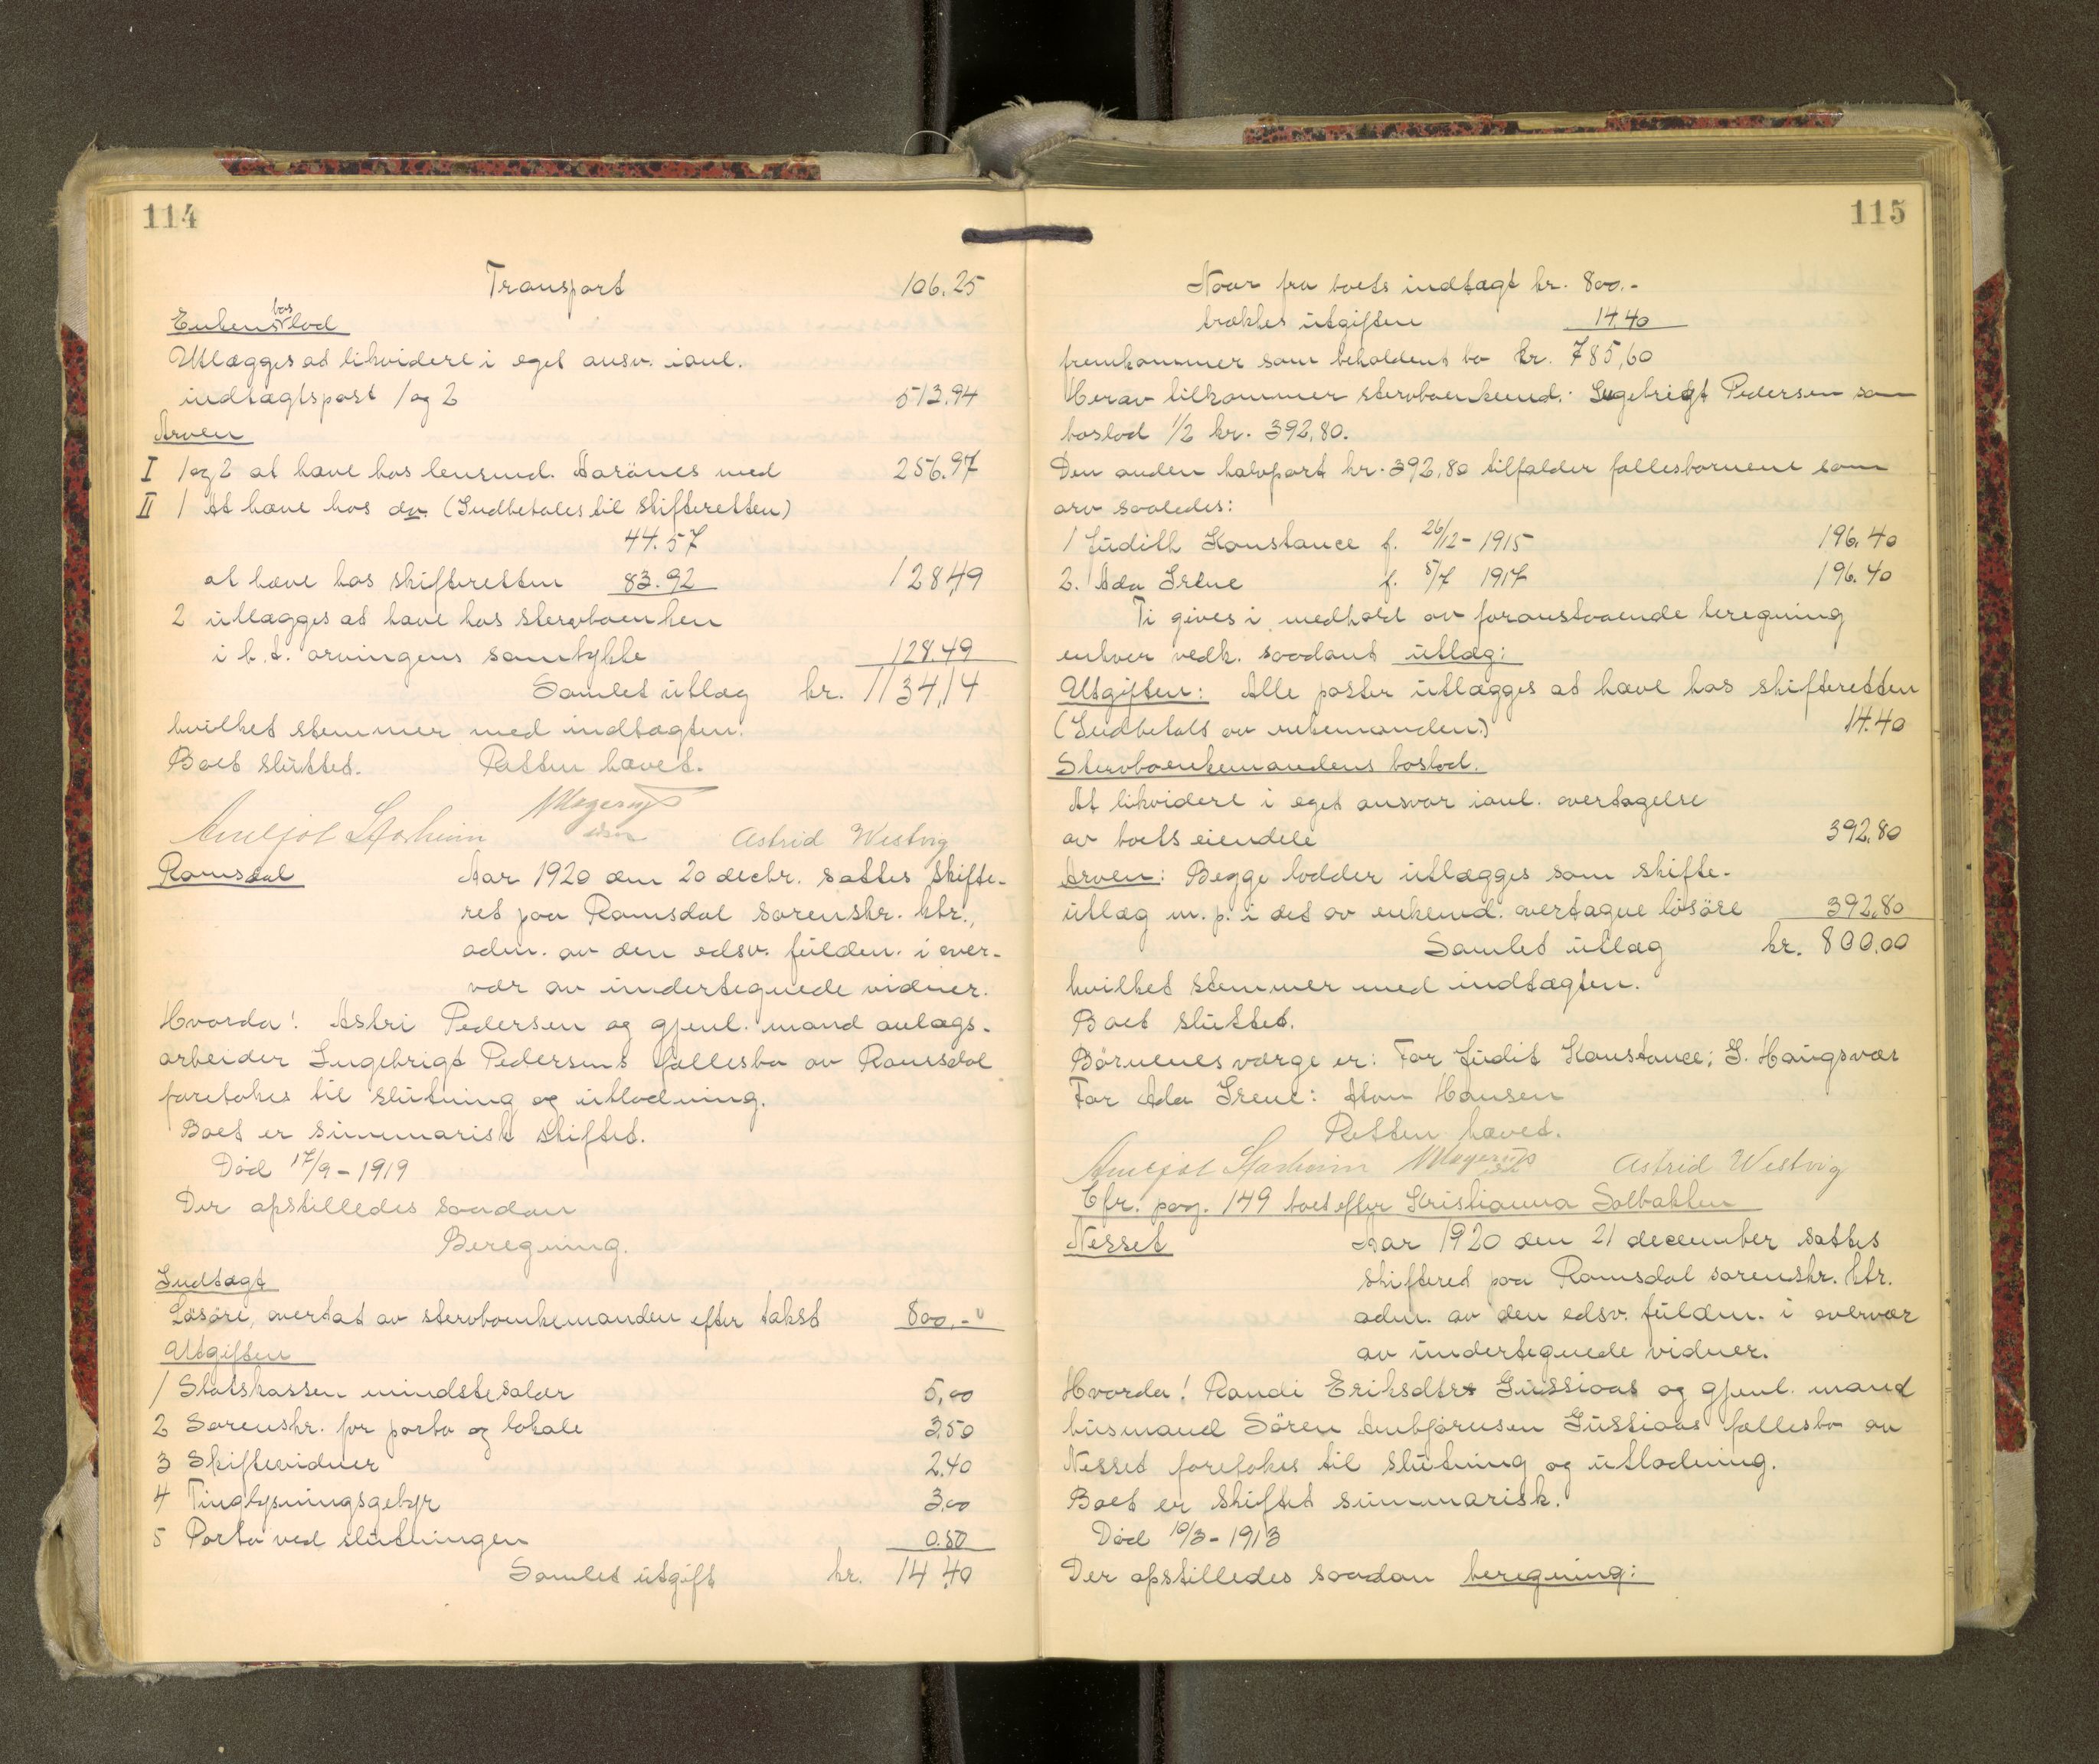 114
Transport 106.25
Enkens boslod
Utlægges at likvidere i eget ansv. ianl.
indtægtspost 1 og 2 513.94
Arven
I 1 og 2 at hæve hos lensmd. Aarönes med 256.97
II 1 At hæve hos do. (Indbetales til skifteretten)
44.57
at hæve hos skifteretten 83.92 128,49
2 utlægges at hæve hos stervboenken
i h. t. arvingens samtykke 128.49
Samlet utlæg kr. 1134,14
hvilket stemmer med indtægten.
Boet sluttet. Retten hævet.
Astrid Westvig
Romsdal Aar 1920 den 20 decbr. sattes skifte-
ret paa Romsdal sorenskr. ktr.,
adm. av den edsv. fuldm. i over-
vær av undertegnede vidner.
Hvorda! Astri Pedersen og gjenl. mand anlægs-
arbeider Ingebrigt Pedersens fællesbo av Romsdal
foretokes til slutning og utlodning.
Boet er summarisk skiftet.
Död 17/9-1919
Der opstilledes saadan
Beregning.
Indtægt
Lösöre, overtat av stervboenkemanden efter takst 800.-
Utgiften
1 Statskassen mindstesalær 5,00
2 Sorenskr. for porto og lokale 3.50
3 Skiftevidner 2.40
4 Tinglysningsgebyr 3.00
5 Porto ved slutningen 0.50
Samlet utgift kr. 14,40
115
Naar fra boets indtægt kr. 800.-
trækkes utgiften 14.40
fremkommer som beholdent bo kr. 785,60
Herav tilkommer stervboenkemd. Ingebrigt Pedersen som
boslod 1/2 kr. 392,80.
Den anden halvpart kr. 392,80 tilfalder fællesbornene som
arv saaledes:
1 Judith Konstance f. 26/12-1915 196.40
2. Ada Irene f. 5/7 1917 196.40
Ti gives i medhold av foranstaaende beregning
enhver vedk. saadant utlæg:
Utgiften: Alle poster utlægges at hæve hos skifteretten
(Indbetalt av enkemanden.) 14.40
Stervboenkemandens boslod.
At likvidere i eget ansvar ianl. overtagelse
av boets eiendele 392,80
Arven: Begge lodder utlægges som skifte-
utlæg m. p. i det av enkemd. overtagne lösöre 392,80
Samlet utlæg kr. 800.00
hvilket stemmer med indtægten.
Boet sluttet.
Börnenes værge er: For Judit Konstance; I. Haugsvær
For Ada Irene: Hansen
Retten hævet.
Astrid Westvig
Cfr. pag. 149 boet efter Kristianna Solbakken
Nesset Aar 1920 den 21 december sattes
skifteret paa Romsdal sorenskr. ktr.
adm. av den edsv. fuldm. i overvær
av undertegnede vidner.
Hvorda! Randi Eriksdtr Jussioas og gjenl. mand
husmand Sören Anbjörnsen Jussioas fællesbo av
Nesset foretokes til slutning og utlodning.
Boet er skiftet summarisk.
Död 10/3-1913
Der opstilledes saadan beregning: